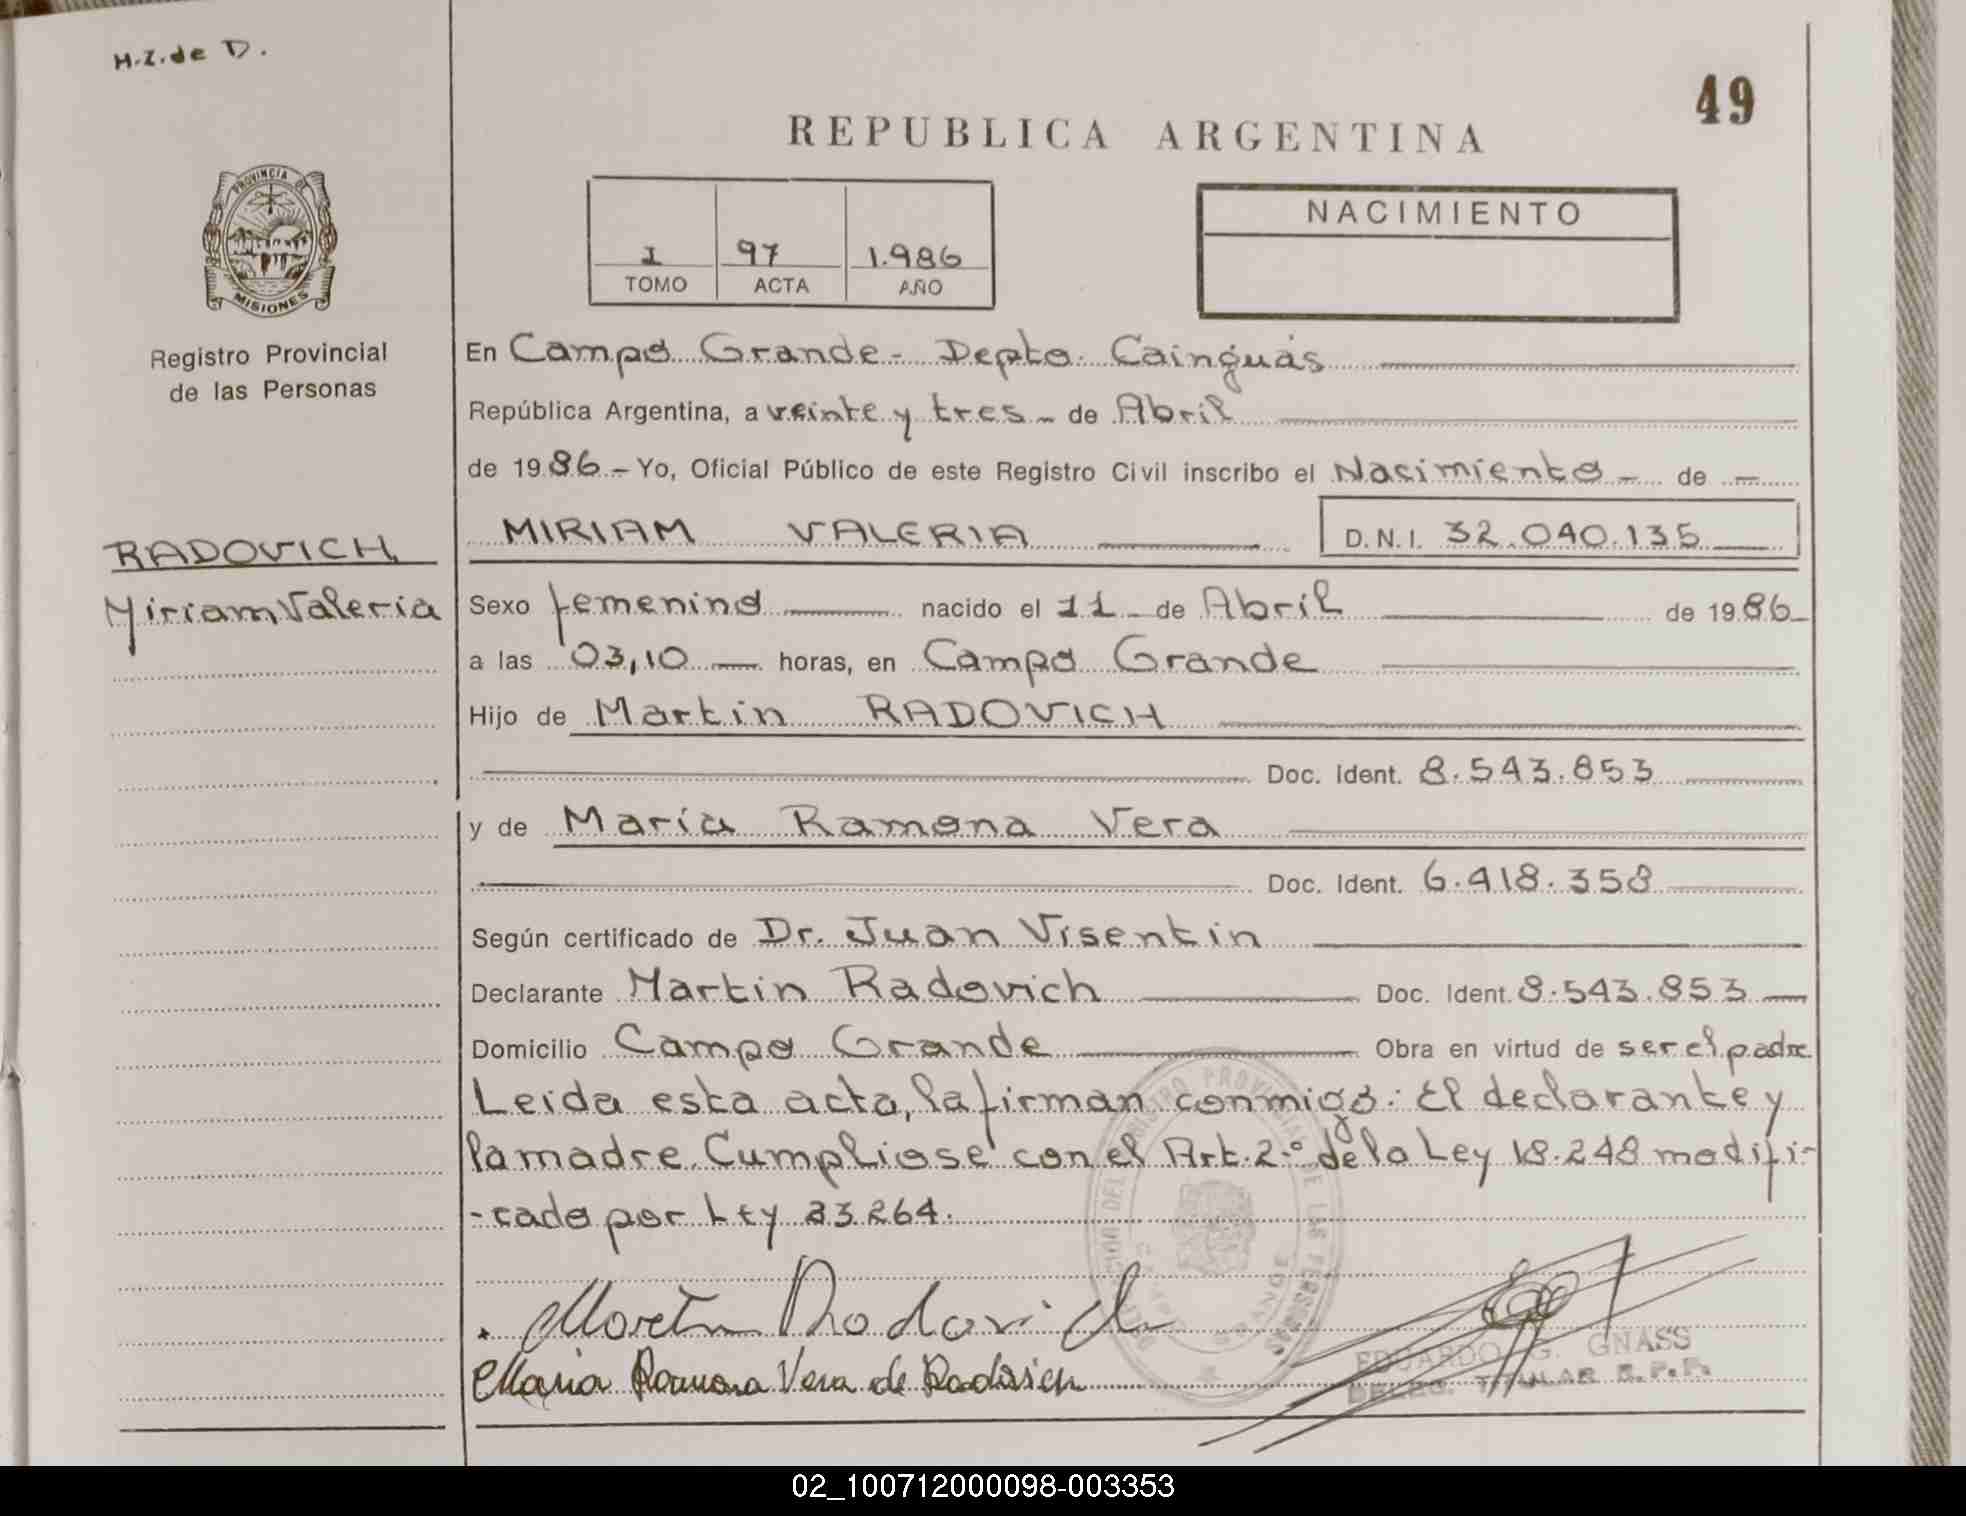 H.Z. de D.
49
REPUBLICA ARGENTINA
PROVINCIA DE
MISIONES
Registro Provincial
de las Personas
I 97 1.986
TOMO ACTA AÑO
NACIMIENTO
En Campo Grande - Depto. Cainguás
República Argentina, a veinte y tres - de Abril
de 1986 - Yo, Oficial Público de este Registro Civil inscribo el Nacimiento - de -
RADOVICH
Miriam Valeria
MIRIAM VALERIA D.N.I. 32.040.135
Sexo femenino nacido el 11 - de Abril de 1986
a las 03,10 horas, en Campo Grande
Hijo de Martin RADOVICH
Doc. Ident. 8.543.853
y de María Ramona Vera
Doc. Ident. 6.418.358
Según certificado de Dr. Juan Visentin
Declarante Martin Radovich Doc. Ident. 8.543.853
Domicilio Campo Grande Obra en virtud de ser el padre
Leida esta acta, la firman conmigo: El declarante y
la madre. Cumpliose con el Art. 2.º de la Ley 18.248 modifi-
-cado por Ley 23.264.
Maria Ramona Vera de Radovich
EDUARDO G. GNASS
DELEG. TITULAR R.P.P.
02_100712000098-003353